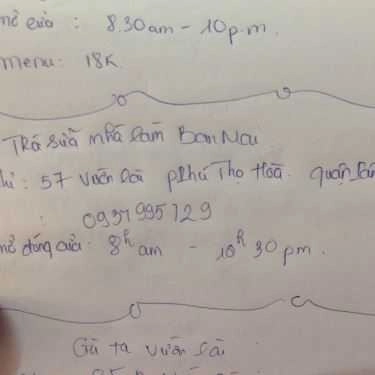 mở cửa : 8.30am - 10p.m.
menu: 18k.
Trà sữa nhà làm Ban Mai
chỉ: 57 vườn lài phú Thọ Hoà. quận tân
: 0937995729
mở đóng cửa: 8h am - 10h 30 pm.
Gà ta vườn lài